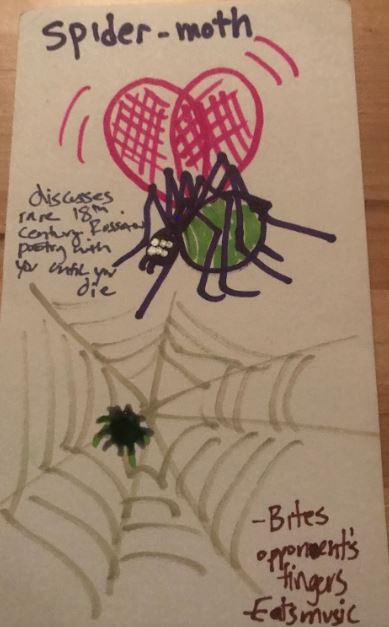 Spider-moth
discusses
rare 18th
century Russian
poetry with
you until you
die
-Bites
opponent's
fingers
-Eats music